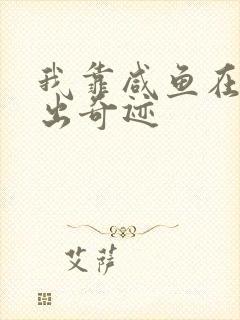 我靠咸鱼在
出奇迹
艾萨